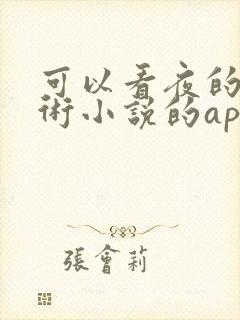 可以看夜的
術小說的ap
張會莉